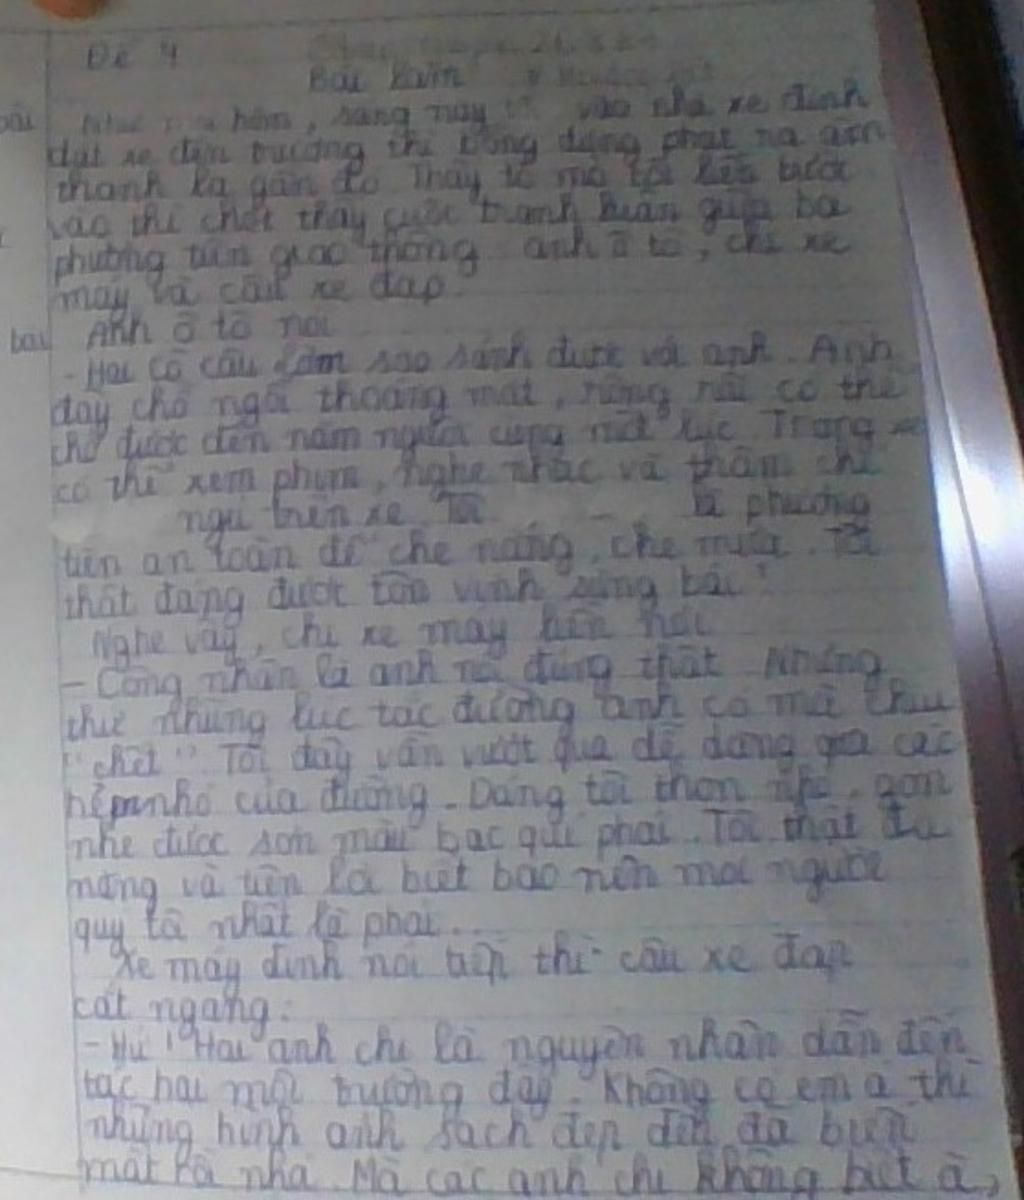 Đề 4
Bài làm
bài
Như mọi hôm, sáng nay vào nhà xe định
dắt xe đến trường thì bỗng dưng phát ra âm
thanh lạ gần đó. Thấy tò mò tôi liền bước
vào thì chợt thấy cuộc tranh luận giữa ba
phương tiện giao thông anh ô tô, chị xe
máy và cậu xe đạp.
bài
Anh ô tô nói
- Hai cô cậu làm sao sánh được với anh. Anh
đây chỗ ngồi thoáng mát, rộng rãi có thể
chở được đến năm người cùng một lúc. Trong xe
có thể xem phim, nghe nhạc và thậm chí
ngủ trên xe. Tôi là phương
tiện an toàn để che nắng, che mưa. Tôi
thật đáng được tôn vinh sùng bái!
Nghe vậy, chị xe máy liền nói
- Công nhận là anh nói đúng thật. Nhưng
thử những lúc tắc đường anh có mà chịu
"chết". Tôi đây vẫn vượt qua dễ dàng qua các
hẻm nhỏ của đường. Dáng tôi thon thả, gọn
nhẹ được sơn màu bạc quí phái. Tôi thật đa
năng và tiện lợi biết bao nên mọi người
quý tôi nhất là phải...
Xe máy định nói tiếp thì cậu xe đạp
cắt ngang:
- Hứ! Hai anh chị là nguyên nhân dẫn đến
tác hại môi trường đấy. Không có em ạ thì
những hình ảnh sạch đẹp đến đã biến
mất rồi nha. Mà các anh chị không biết à,